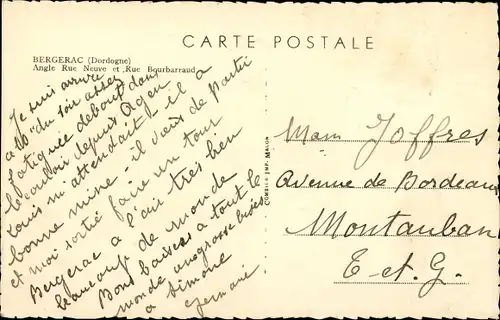 CARTE POSTALE
BERGERAC (Dordogne)
Angle Rue Neuve et Rue Bourbarraud
Je suis arrivée
a 6h du soir assez
fatiguée debout dans
le couloir depuis Agen
Louis m'attendait - il a
bonne mine - il vient de partir
et moi sortie faire un tour
Bergerac a l'air très bien
beaucoup de monde
Bons baisers a tout le
monde une grosse bises
a Simone
Germaine
COMBIER IMP. MACON
Mam Joffres
Avenue de Bordeaux
Montauban
T et G.